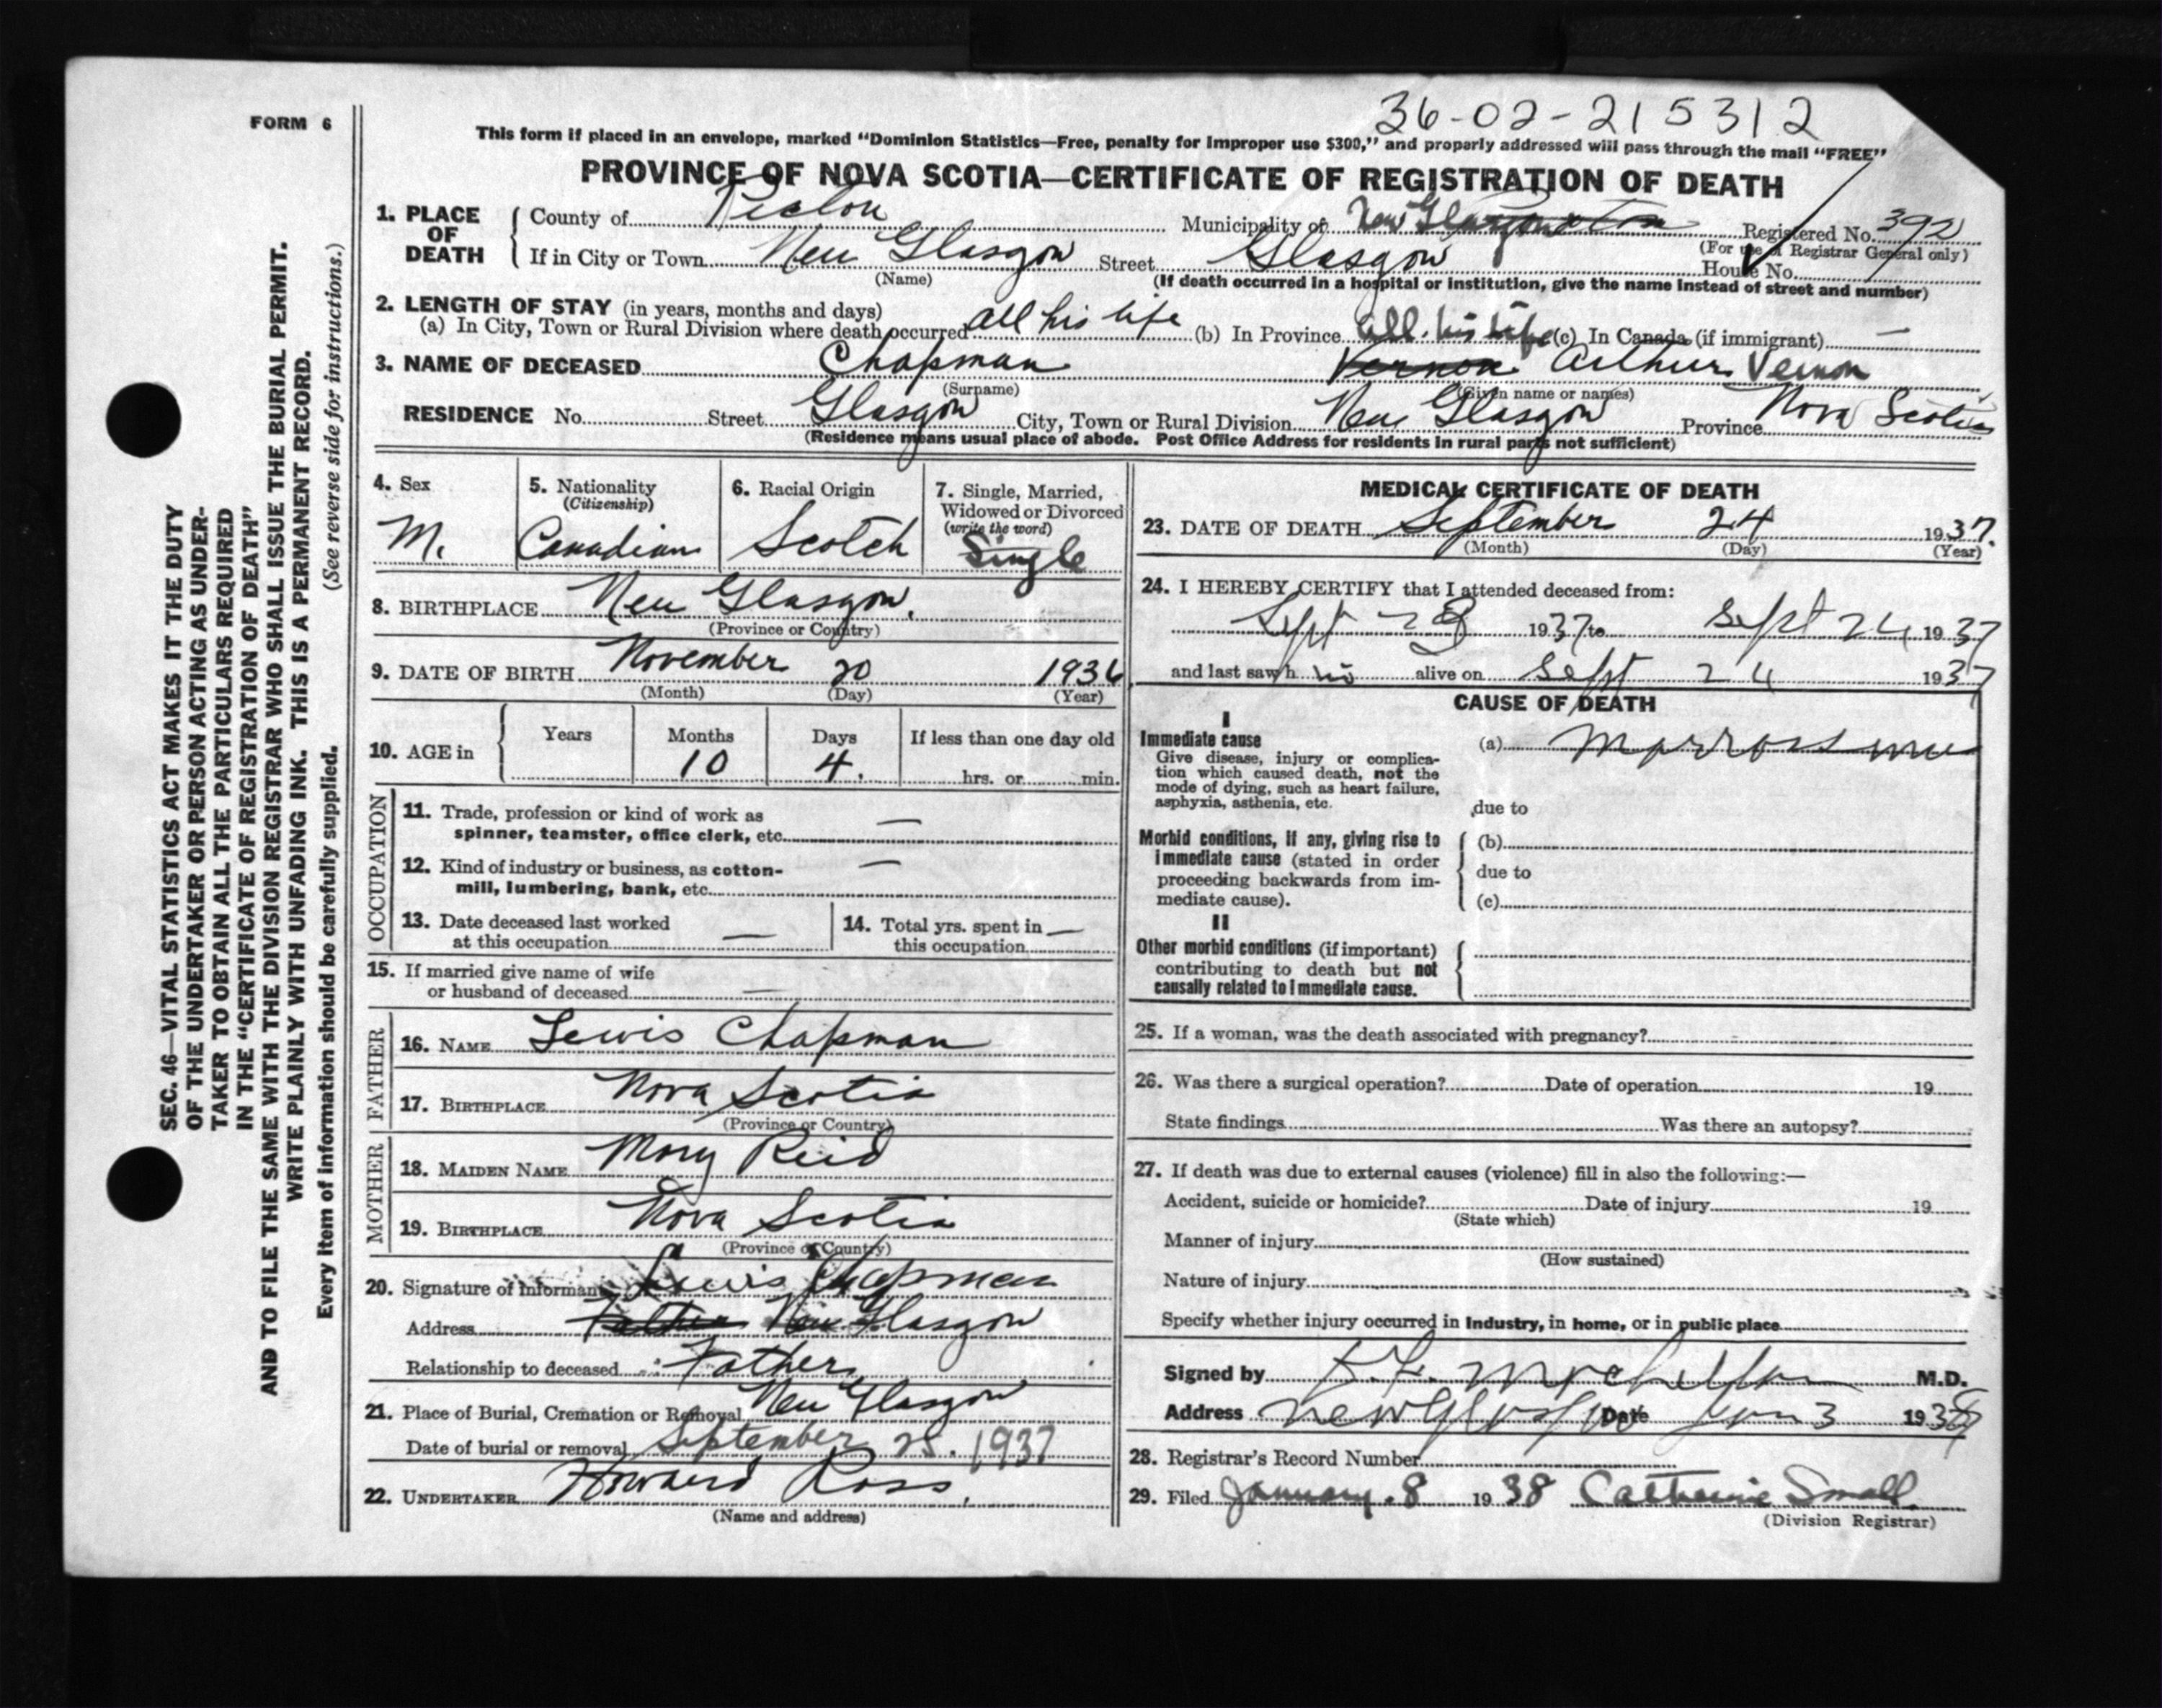 FORM 6
36-02-215312
This form if placed in an envelope, marked “Dominion Statistics—Free, penalty for improper use $300,” and properly addressed will pass through the mail “FREE”
PROVINCE OF NOVA SCOTIA—CERTIFICATE OF REGISTRATION OF DEATH
1. PLACE OF DEATH
County of Pictou Municipality of New Glasgow Registered No. 392
(For use of Registrar General only)
If in City or Town New Glasgow Street Glasgow House No.
(Name) (If death occurred in a hospital or institution, give the name instead of street and number)
2. LENGTH OF STAY (in years, months and days)
(a) In City, Town or Rural Division where death occurred all his life (b) In Province all his life (c) In Canada (if immigrant) —
3. NAME OF DECEASED Chapman Vernon Arthur Vernon
(Surname) (Given name or names)
RESIDENCE No. Street Glasgow City, Town or Rural Division New Glasgow Province Nova Scotia
(Residence means usual place of abode. Post Office Address for residents in rural parts not sufficient)
4. Sex
M.
5. Nationality
(Citizenship)
Canadian
6. Racial Origin
Scotch
7. Single, Married,
Widowed or Divorced
(write the word)
Single
8. BIRTHPLACE New Glasgow.
(Province or Country)
9. DATE OF BIRTH November 20 1936
(Month) (Day) (Year)
10. AGE in
Years Months Days If less than one day old
10 4. hrs. or min.
OCCUPATION
11. Trade, profession or kind of work as
spinner, teamster, office clerk, etc. —
12. Kind of industry or business, as cotton-
mill, lumbering, bank, etc. —
13. Date deceased last worked
at this occupation —
14. Total yrs. spent in
this occupation —
15. If married give name of wife
or husband of deceased —
FATHER
16. NAME Lewis Chapman
17. BIRTHPLACE Nova Scotia
(Province or Country)
MOTHER
18. MAIDEN NAME Mary Reid
19. BIRTHPLACE Nova Scotia
(Province or Country)
20. Signature of informant Lewis Chapman
Address Father New Glasgow
Relationship to deceased Father
21. Place of Burial, Cremation or Removal New Glasgow
Date of burial or removal September 25. 1937
22. UNDERTAKER Howard Ross.
(Name and address)
MEDICAL CERTIFICATE OF DEATH
23. DATE OF DEATH September 24 1937.
(Month) (Day) (Year)
24. I HEREBY CERTIFY that I attended deceased from:
Sept 23 1937 to Sept 24 1937
and last saw h alive on Sept 24 1937
CAUSE OF DEATH
I
Immediate cause
Give disease, injury or complica-
tion which caused death, not the
mode of dying, such as heart failure,
asphyxia, asthenia, etc.
(a)
due to
Morbid conditions, if any, giving rise to
immediate cause (stated in order
proceeding backwards from im-
mediate cause).
(b)
due to
(c)
II
Other morbid conditions (if important)
contributing to death but not
causally related to immediate cause.
25. If a woman, was the death associated with pregnancy?
26. Was there a surgical operation? Date of operation 19
State findings Was there an autopsy?
27. If death was due to external causes (violence) fill in also the following:—
Accident, suicide or homicide? Date of injury 19
(State which)
Manner of injury
(How sustained)
Nature of injury
Specify whether injury occurred in industry, in home, or in public place
Signed by M.D.
Address New Glasgow Date Jan 3 1938
28. Registrar's Record Number
29. Filed January 8 1938 Catherine Small
(Division Registrar)
SEC. 46—VITAL STATISTICS ACT MAKES IT THE DUTY
OF THE UNDERTAKER OR PERSON ACTING AS UNDER-
TAKER TO OBTAIN ALL THE PARTICULARS REQUIRED
IN THE “CERTIFICATE OF REGISTRATION OF DEATH”
AND TO FILE THE SAME WITH THE DIVISION REGISTRAR WHO SHALL ISSUE THE BURIAL PERMIT.
WRITE PLAINLY WITH UNFADING INK. THIS IS A PERMANENT RECORD.
Every item of information should be carefully supplied. (See reverse side for instructions.)